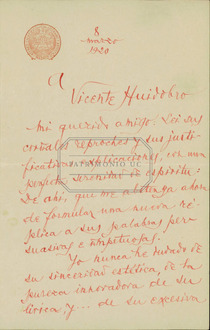 8
marzo
1920
A
Vicente Huidobro
Mi querido amigo: Leí sus
cordiales reproches y sus justi-
ficativas explicaciones, con una
perfecta serenidad de espíritu:
De ahí, que me abstenga ahora
de formular una nueva ré-
plica a sus palabras per-
suasivas e impetuosas.
Yo nunca he dudado de
su sinceridad estética, de la
pureza innovadora de su
lírica, y... de su excesiva
PATRIMONIO DE